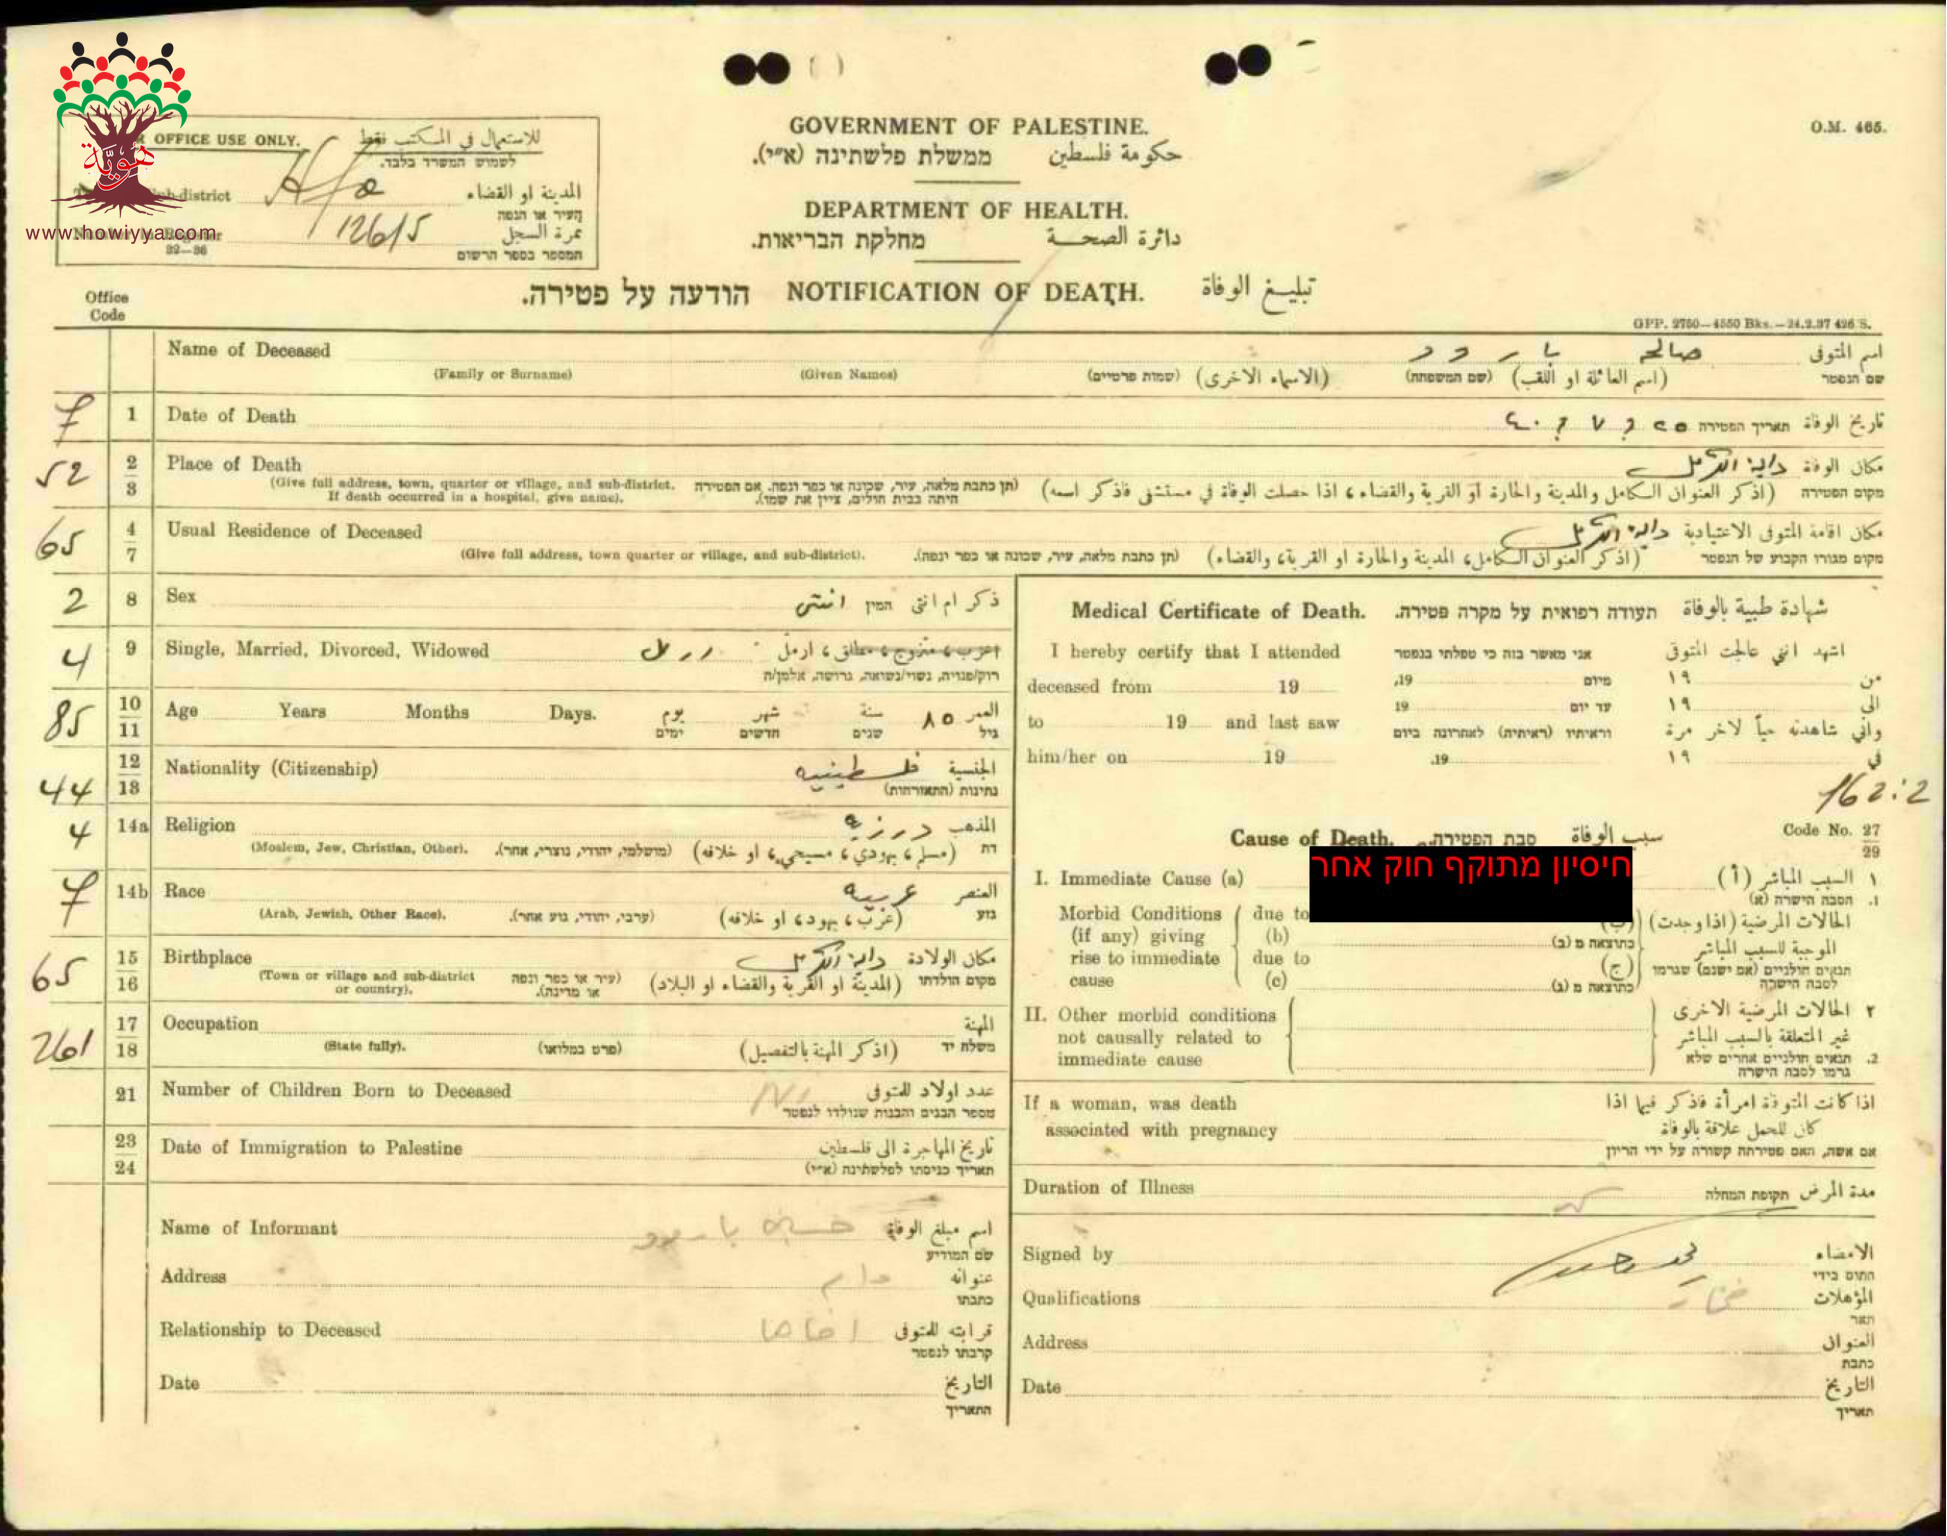 هويّة
www.howiyya.com
OFFICE USE ONLY. للاستعمال في المكتب فقط
לשמוש המשרד בלבד.
Sub-district المدينة او القضاء
העיר או הנפה
12615 نمرة السجل
32—36 המספר בספר הרשום
GOVERNMENT OF PALESTINE.
ממשלת פלשתינה (א״י). حكومة فلسطين
DEPARTMENT OF HEALTH.
מחלקת הבריאות. دائرة الصحة
O.M. 465.
הודעה על פטירה. NOTIFICATION OF DEATH. تبليغ الوفاة
Office Code
GPP. 2750—4550 Bks.—24.2.37 426/S.
Name of Deceased صالحه بارود اسم المتوفى
(Family or Surname) (Given Names) (שמות פרטיים) (الاسماء الاخرى) (שם המשפחה) (اسم العائلة او اللقب) שם הנפטר
7 1 Date of Death ٢٥ و ٧ و ٤٠ תאריך הפטירה تاريخ الوفاة
52 2/3 Place of Death دالية الكرمل مكان الوفاة
(Give full address, town, quarter or village, and sub-district. If death occurred in a hospital, give name).
(תן כתבת מלאה, עיר, שכונה או כפר ונפה. אם הפטירה היתה בבית חולים, ציין את שמו).
(اذكر العنوان الكامل والمدينة والحارة او القرية والقضاء، اذا حصلت الوفاة في مستشفى فاذكر اسمه) מקום הפטירה
65 4/7 Usual Residence of Deceased دالية الكرمل مكان اقامة المتوفى الاعتيادية
(Give full address, town quarter or village, and sub-district). (תן כתבת מלאה, עיר, שכונה או כפר ונפה). (اذكر العنوان الكامل، المدينة والحارة او القرية، والقضاء) מקום מגורו הקבוע של הנפטר
2 8 Sex انثى המין ذكر ام انثى
4 9 Single, Married, Divorced, Widowed اعزب، متزوج، مطلق، ارمل
רוק/פנויה, נשוי/נשואה, גרושה, אלמן/ה
85 10/11 Age Years Months Days. يوم شهر سنة ٨٥ العمر
ימים חדשים שנים גיל
44 12/13 Nationality (Citizenship) فلسطينيه الجنسية
נתינות (התאזרחות)
4 14a Religion درزيه المذهب
(Moslem, Jew, Christian, Other). (מושלמי, יהודי, נוצרי, אחר). (مسلم، يهودي، مسيحي، او خلافه) דת
7 14b Race عربيه العنصر
(Arab, Jewish, Other Race). (ערבי, יהודי, גזע אחר). (عرب، يهود، او خلافه) גזע
65 15/16 Birthplace دالية الكرمل مكان الولادة
(Town or village and sub-district or country). (עיר או כפר ונפה או מדינה). (المدينة او القرية والقضاء او البلاد) מקום הולדתו
261 17/18 Occupation المهنة
(State fully). (פרט במלואו) (اذكر المهنة بالتفصيل) משלח יד
21 Number of Children Born to Deceased عدد اولاد المتوفى
מספר הבנים והבנות שנולדו לנפטר
23/24 Date of Immigration to Palestine تاريخ المهاجرة الى فلسطين
תאריך כניסתו לפלשתינה (א״י)
Name of Informant بارود اسم مبلغ الوفاة
שם המודיע
Address عنوانه
כתבתו
Relationship to Deceased قرابته للمتوفى
קרבתו לנפטר
Date التاريخ
התאריך
Medical Certificate of Death. תעודה רפואית על מקרה פטירה. شهادة طبية بالوفاة
I hereby certify that I attended אני מאשר בזה כי טפלתי בנפטר اشهد انني عالجت المتوفى
deceased from 19 מיום 19, من ١٩
to 19 and last saw עד יום 19 الى ١٩
וראיתיו (ראיתיה) לאחרונה ביום واني شاهدته حياً لآخر مرة
him/her on 19 19. في ١٩
162:2
Cause of Death. סבת הפטירה. سبب الوفاة Code No. 27/29
חיסיון מתוקף חוק אחר
I. Immediate Cause (a) ١ السبب المباشر (أ)
1. הסבה הישרה (א)
Morbid Conditions due to الحالات المرضية (اذا وجدت) (ب)
(if any) giving (b) כתוצאה מ (ב) الموجبة للسبب المباشر
rise to immediate due to (ج) תנאים חולניים (אם ישנם) שגרמו
cause (c) כתוצאה מ (ג) לסבה הישרה
II. Other morbid conditions ٢ الحالات المرضية الاخرى
not causally related to غير المتعلقة بالسبب المباشر
immediate cause 2. תנאים חולניים אחרים שלא גרמו לסבה הישרה
If a woman, was death اذا كانت المتوفاة امرأة فاذكر فيما اذا
associated with pregnancy كان للحمل علاقة بالوفاة
אם אשה, האם פטירתה קשורה על ידי הריון
Duration of Illness תקופת המחלה مدة المرض
Signed by الامضاء
החום בידי
Qualifications مختار المؤهلات
תאר
Address العنوان
כתבת
Date التاريخ
תאריך